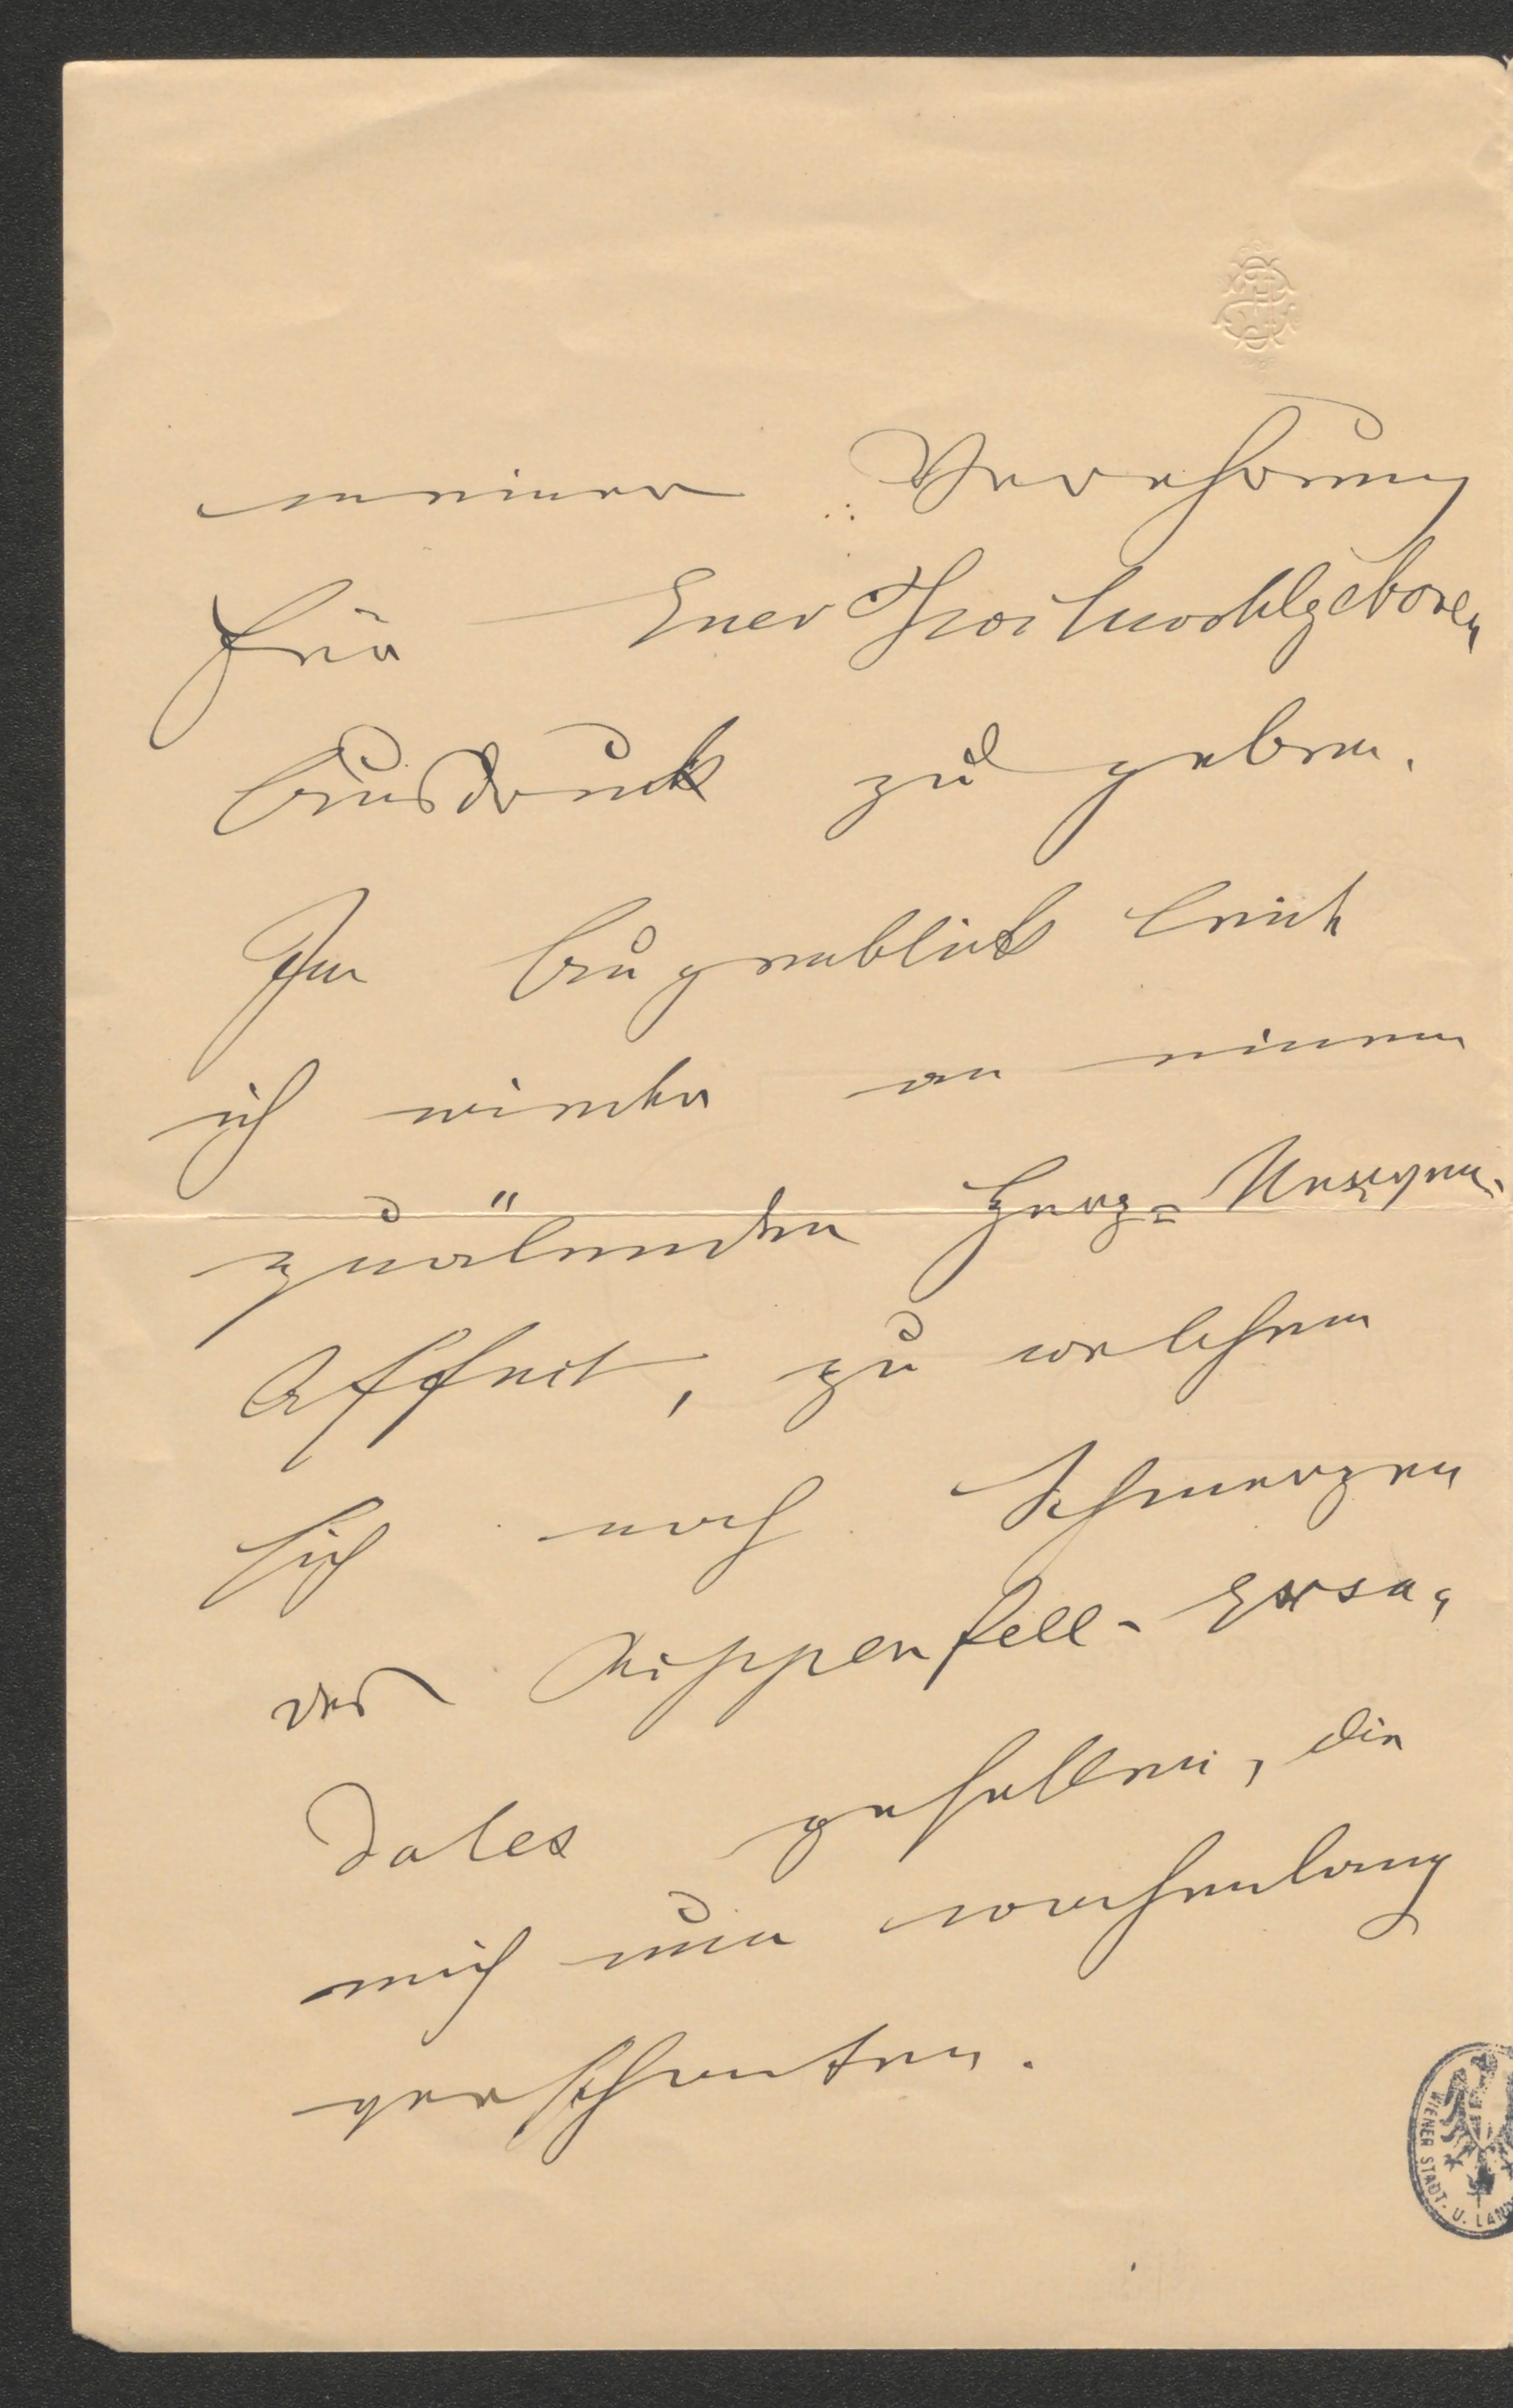 meiner Verehrung
für Euer Hochwohlgeboren
Ausdruck zu geben.
Im Augenblick leide
ich wieder an einem
quälenden Herz-Nerven-
Affect, zu welchem
sich noch Schmerzen
des Rippenfell-Exsu-
dates gesellen, die
mich nun wochenlang
verschonten.
WIENER STADT- U. LAND